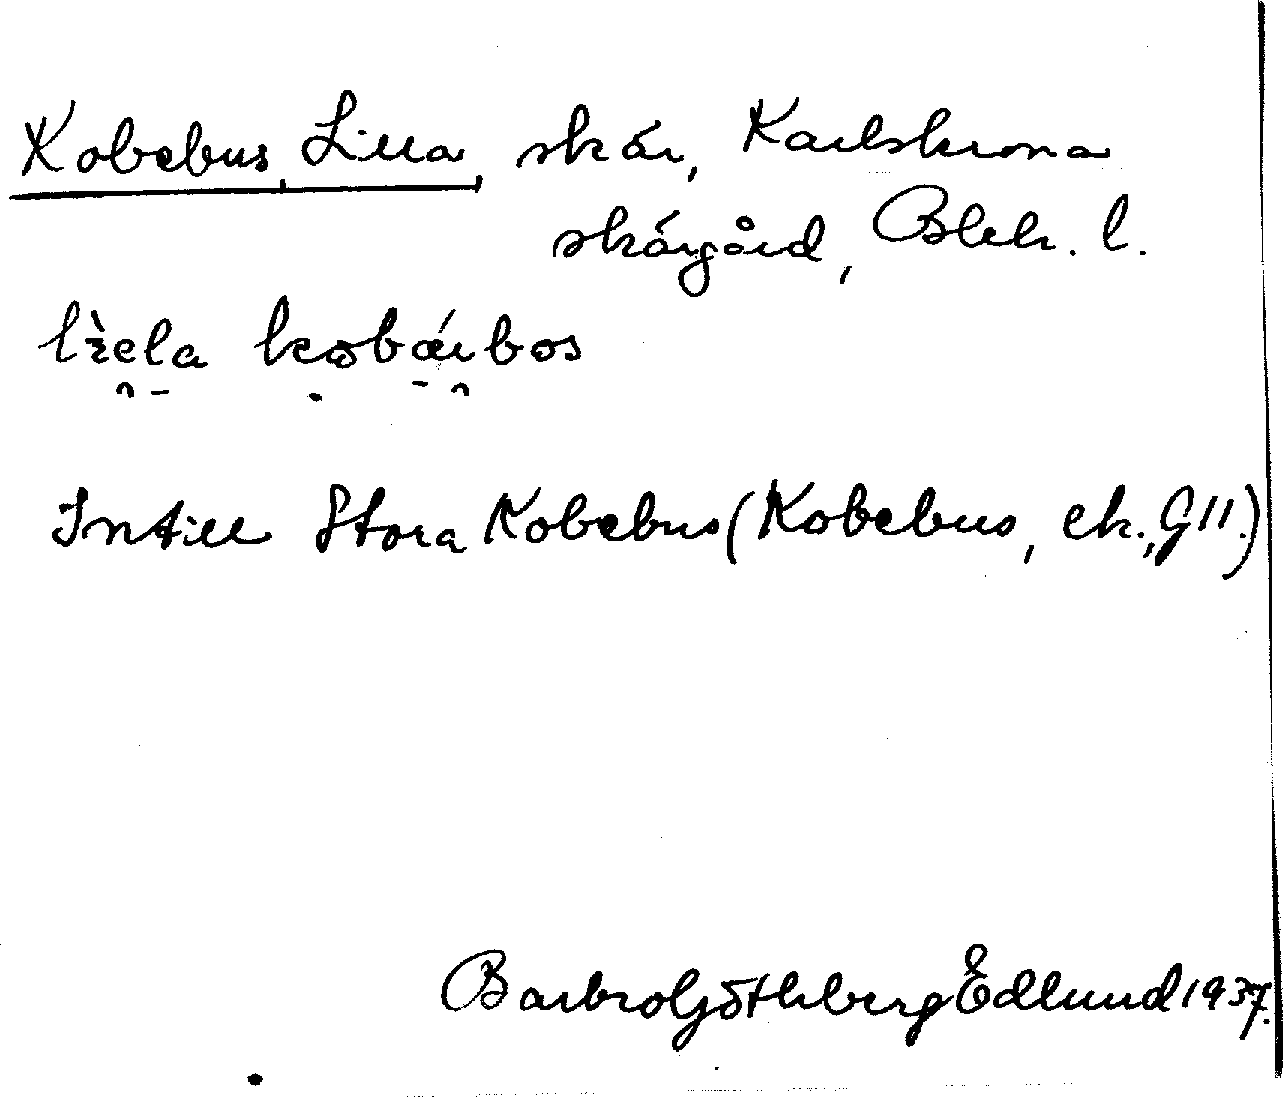 Kobebus, Lilla, skär, Karlskrona
skärgård, Blek. l.
Intill Stora Kobebus (Kobebus, ek., G11.)
Barbro Götheberg Edlund 1937.